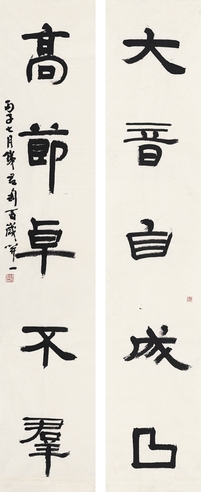 大音自成曲
高節卓不羣
丙子七月錢君匋百歲開一